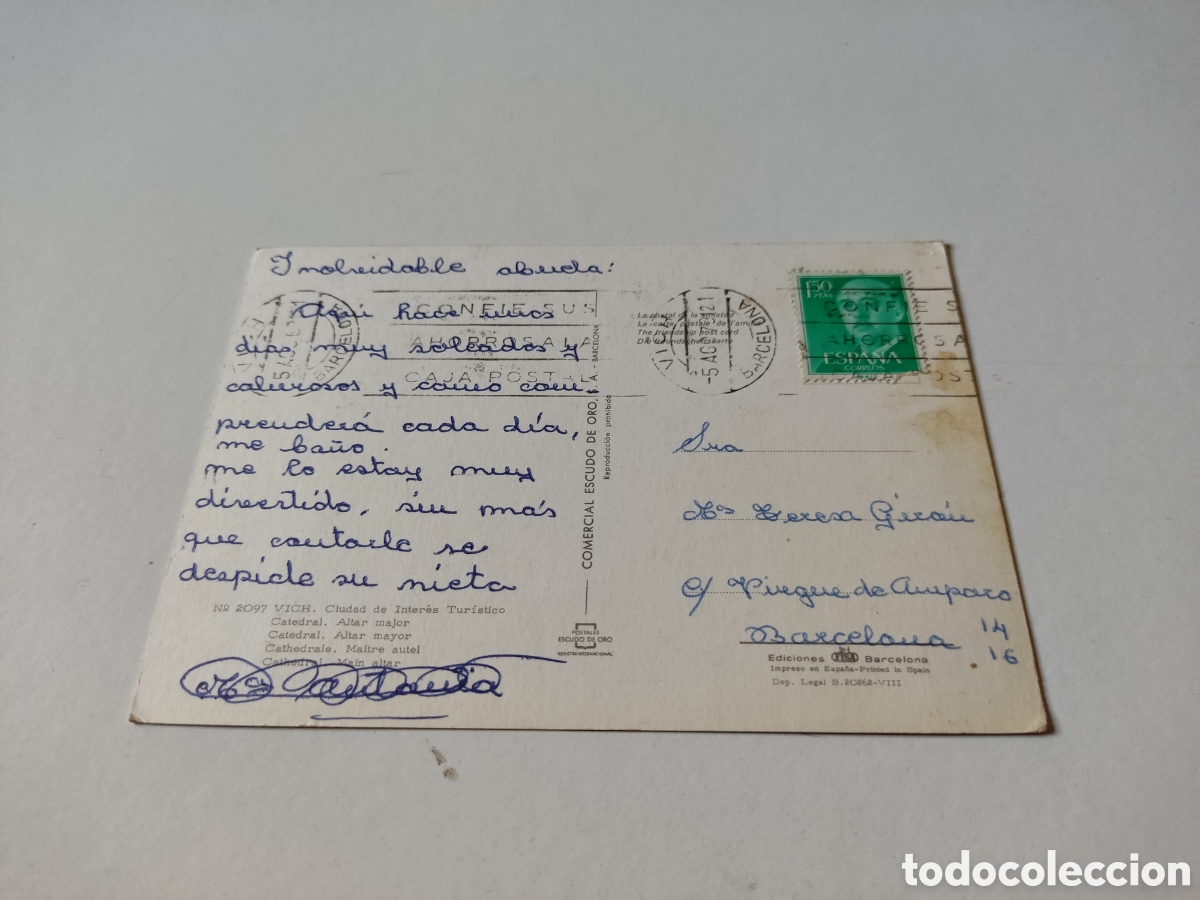 Inolvidable abuela:
Aqui hace unos
dias muy soleados y
calurosos y como com-
prenderá cada día,
me baño.
me lo estoy muy
divertido, sin más
que contarle se
despide su nieta
Nº 2097 VICH. Ciudad de Interés Turístico
Catedral. Altar major
Catedral. Altar mayor
Cathedrale. Maître autel
Cathedral. Main altar
Mª
VICH
5 AGO
BARCELONA
CONFIE SUS
AHORROS A LA
CAJA POSTAL
COMERCIAL ESCUDO DE ORO, S.A. - BARCELONA
Reproducción prohibida
POSTALES
ESCUDO DE ORO
REGISTRO INTERNACIONAL
La postal de la amistad
La carte postale de l'amitié
The friendship post card
Die freundschaftskarte
VICH
-5 AGO
21
BARCELONA
1'50
PTAS
ESPAÑA
CORREOS
Sra
Mª Teresa Girón
c/ Virgen de Amparo
14
Barcelona 16
Ediciones Barcelona
Impreso en España-Printed in Spain
Dep. Legal B. 20262-VIII
todocoleccion